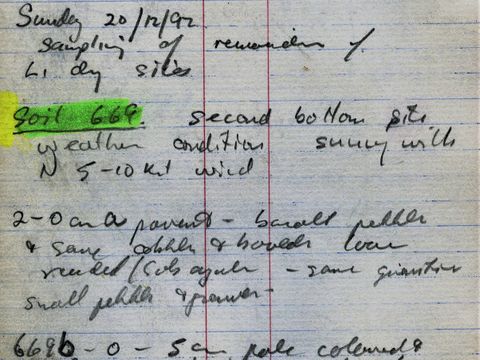 Sunday 20/12/92
sampling of remainder of
L1 dry sites
Soil 669 second bottom site
weather condition sunny with
N 5-10 knt wind
2-0 cm pavement - basalt pebbles
& some cobbles & boulders
rounded/sub angular - some
small pebbles &
669b - 0 - 5 cm pale coloured &